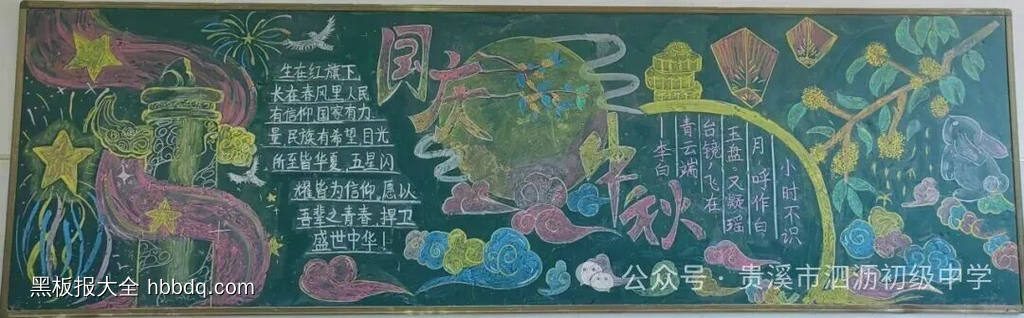 生在红旗下,
长在春风里人民
有信仰国家有力
量民族有希望目光
所至皆华夏,五星闪
耀皆为信仰,愿以
吾辈之青春捍卫
盛世中华!
国庆
中秋
小时不识
月,呼作白
玉盘。又疑瑶
台镜飞在
青云端
—李白
黑板报大全 hbbdq.com
公众号 · 贵溪市泗沥初级中学